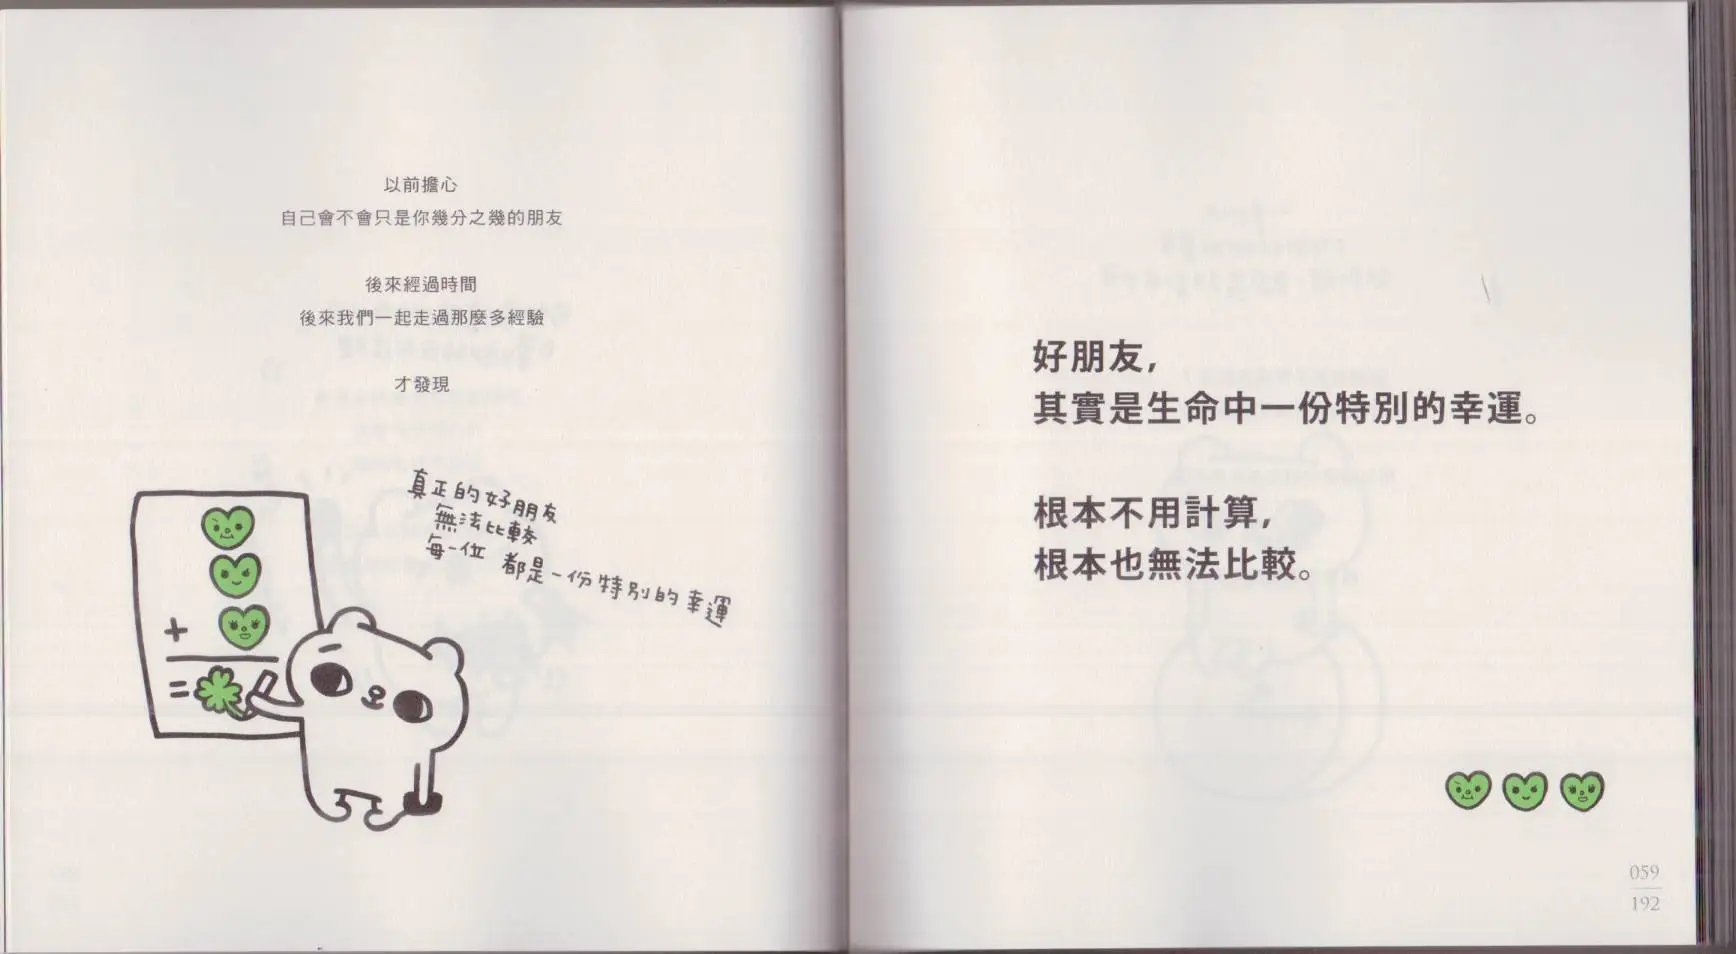 以前擔心
自己會不會只是你幾分之幾的朋友
後來經過時間
後來我們一起走過那麼多經驗
才發現
真正的好朋友
無法比較
每一位 都是一份特別的幸運
+
=
好朋友,
其實是生命中一份特別的幸運。
根本不用計算,
根本也無法比較。
059
192